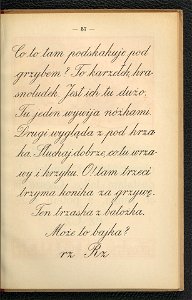 — 87 —
Co to tam podskakuje pod
grzybem? To karzełek, kra-
snoludek. Jest ich tu dużo.
Tu jeden wywija nóżkami.
Drugi wygląda z pod krza-
ka. Słuchaj dobrze, co tu wrza-
wy i krzyku. O! tam trzeci
trzyma konika za grzywę.
Ten trzaska z batożka.
Może to bajka?
rz Rz